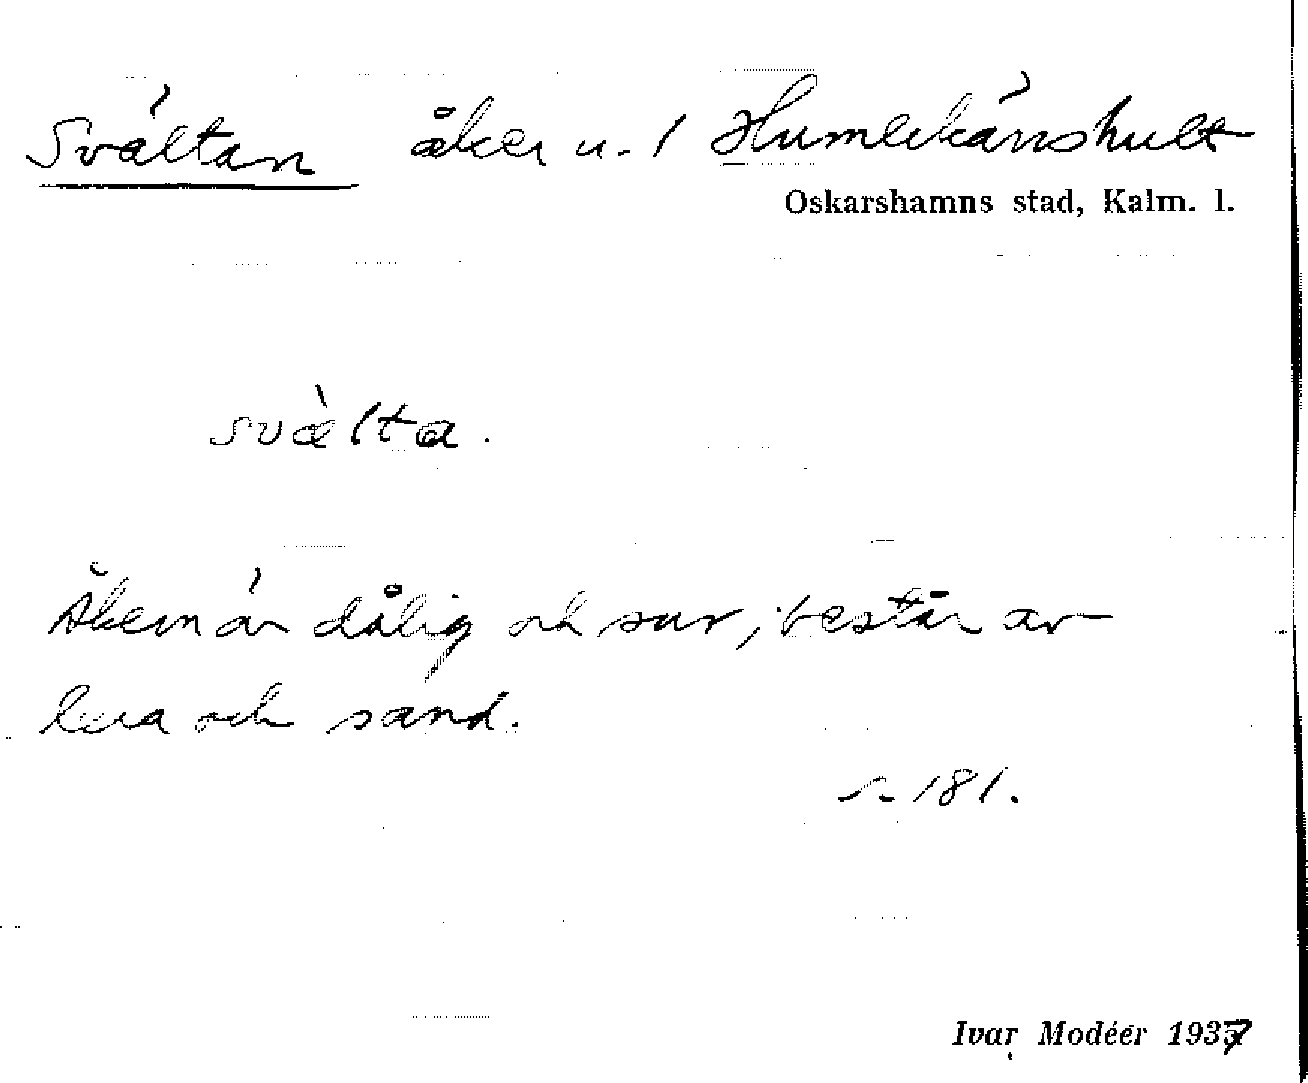 Svältan åker u. 1 Humlekärrshult
Oskarshamns stad, Kalm. l.
svæ̀lta.
Åkern är dålig och sur, består av
lera och sand.
s. 181.
Ivar Modéer 1937